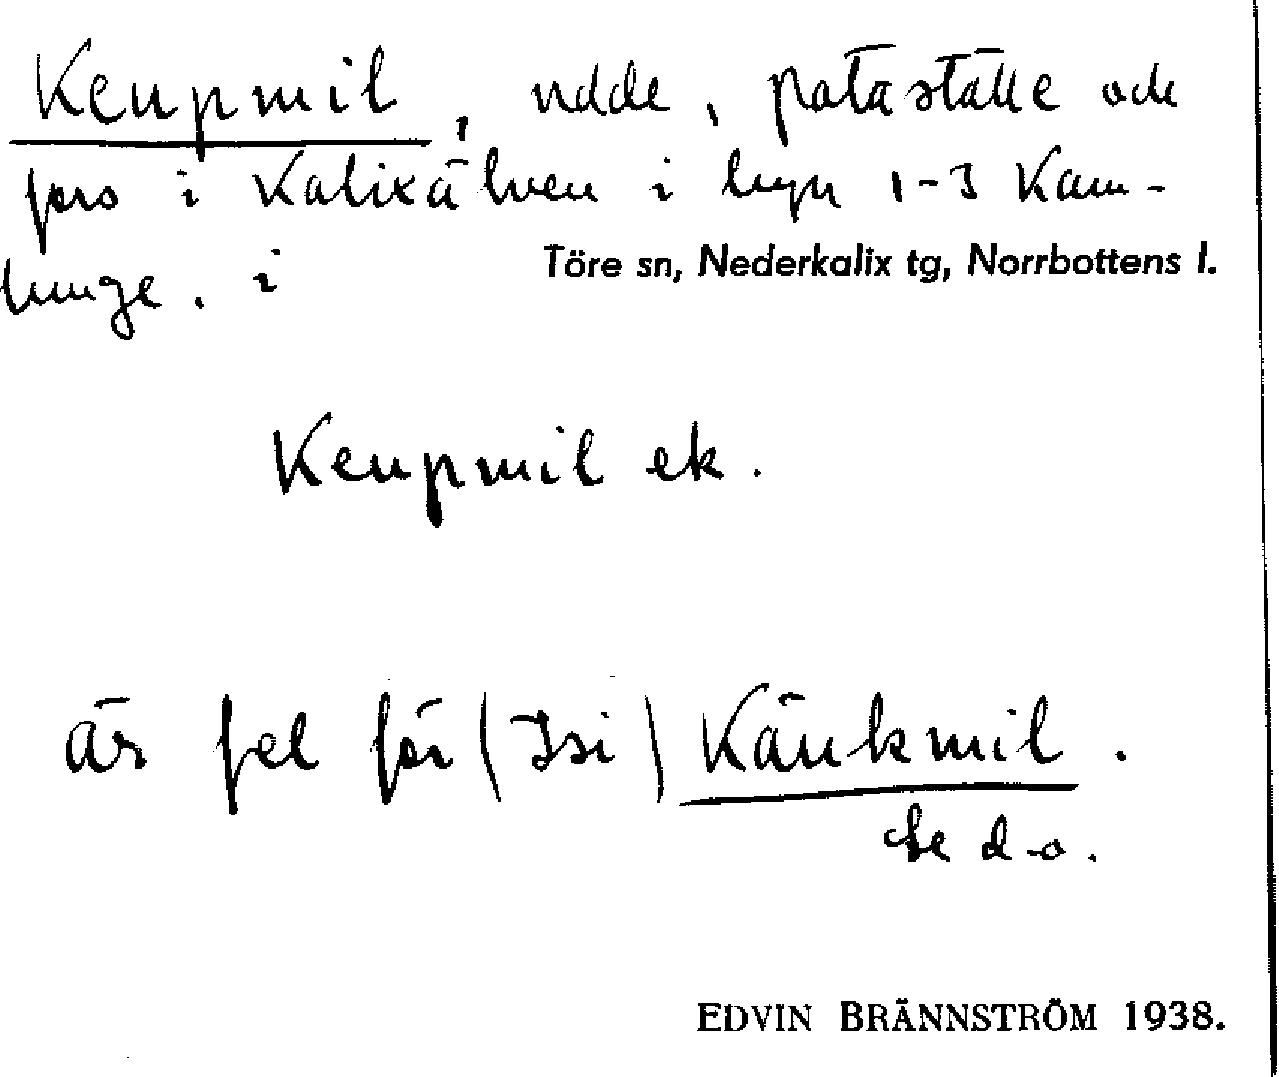 Keupmil, udde, pataställe och
fors i Kalixälven i byn 1-3 Kam-
lunge. i Töre sn, Nederkalix tg, Norrbottens l.
Keupmil ek.
är fel för (Isi) Käukmil.
Se d.o.
EDVIN BRÄNNSTRÖM 1938.